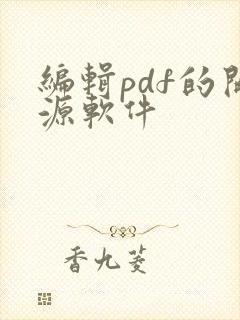 編輯pdf的開
源軟件
香九菱